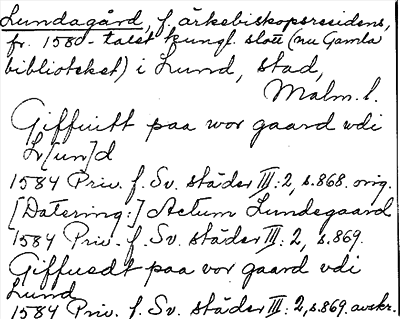 Lundagård, f. ärkebiskopsresidens,
fr. 1580-talet kungl. slott (nu Gamla
biblioteket) i Lund, stad,
Malm. l.
Giffuitt paa wor gaard vdi
Lv[un]d
1584 Priv. f. Sv. städer III:2, s.868. orig.
[Datering:] Actum Lundegaard
1584 Priv. f. Sv. städer III:2, s.869.
Giffuedt paa vor gaard vdi
Lund
1584 Priv. f. Sv. städer III:2, s.869. avskr.